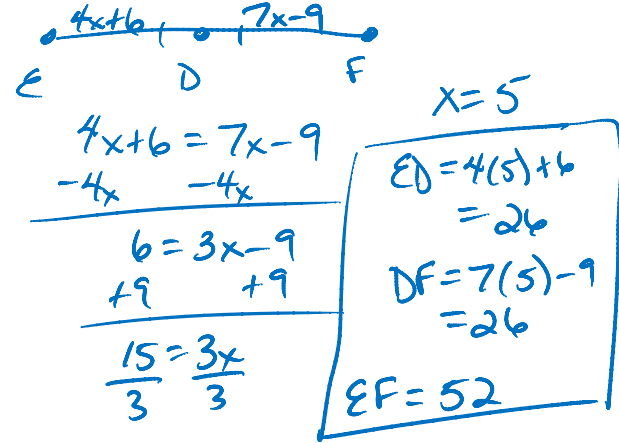 4x+6 7x-9
E D F
4x+6 = 7x-9
-4x -4x
6 = 3x-9
+9 +9
15 = 3x
3 3
x=5
ED=4(5)+6
=26
DF=7(5)-9
=26
EF=52